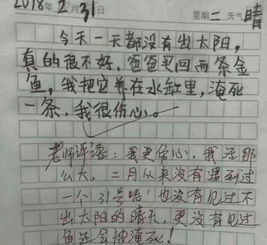 2018年2月31日 星期二 天气晴
今天一天都没有出太阳，
真的很不好，爸爸买回两条金
鱼，我把它养在水缸里，淹死
一条，我很伤心。
老师评语：我更伤心，我活那
么大，二月从来没有遇到过
一个31号呢！也没有见过不
出太阳的晴天，更没有见过
鱼还会被淹死！